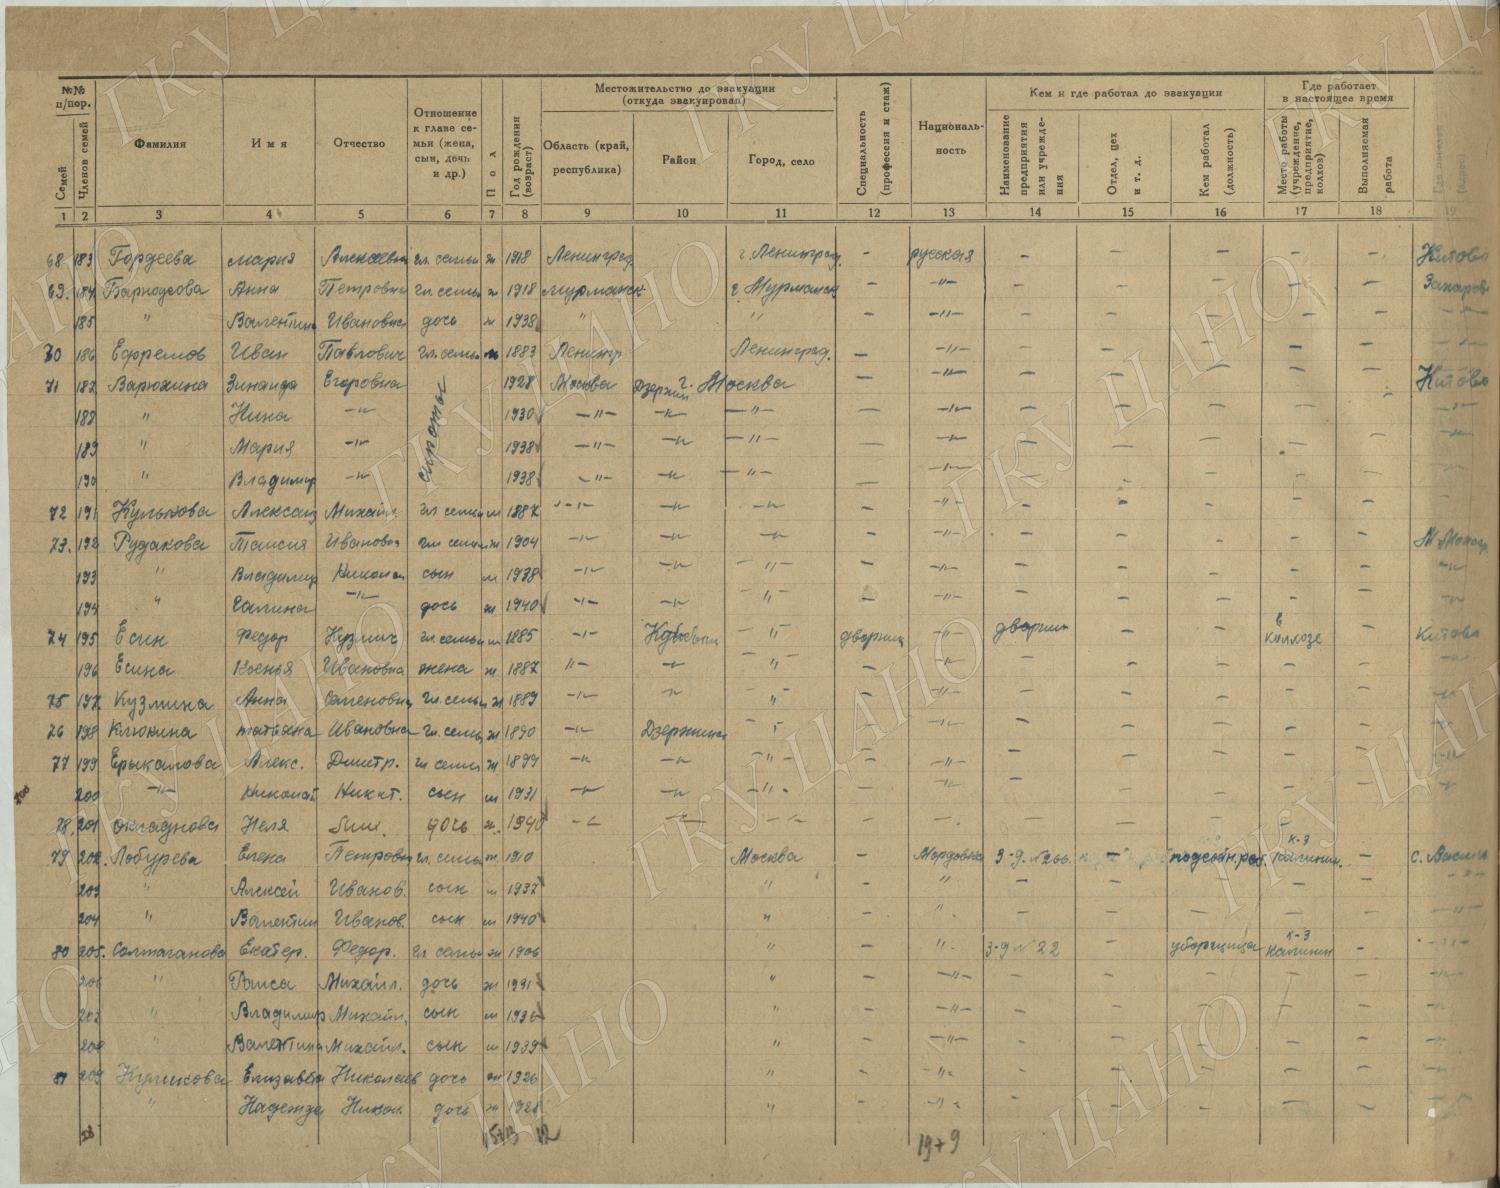 №№ п/пор.
Семей
Членов семей
Фамилия
Имя
Отчество
Отношение к главе семьи (жена, сын, дочь и др.)
Пол
Год рождения (возраст)
Местожительство до эвакуации (откуда эвакуирован)
Область (край, республика)
Район
Город, село
Специальность (профессия и стаж)
Националь- ность
Кем и где работал до эвакуации
Наименование предприятия или учрежде- ния
Отдел, цех и т. д.
Кем работал (должность)
Где работает в настоящее время
Место работы (учреждение, предприятие, колхоз)
Выполняемая работа
1 2 3 4 5 6 7 8 9 10 11 12 13 14 15 16 17 18 19
68 183 Гордеева Мария Алексеевна гл. семьи ж 1918 Ленинград г. Ленинград. – русская – – – – – Китово
69. 184 Анна Петровна гл семьи ж 1918 Мурманск г. Мурманск – –"– – – – – – Захаров
185 " Валентина Ивановна дочь ж 1938 " " – –"– – – – – –
70 186 Ефремов Иван Павлович гл. семьи м 1883 Ленингр Ленинград. – –"– – – – – –
71 187 Варюхина Зинаида Егоровна сироты 1928 Москва Дзержин г. Москва – –"– – – – – – Китово
188 " Нина –"– 1930 –"– –"– –"– – –"– – – – – –
189 " Мария –"– 1938 –"– –"– –"– – –"– – – – – –
190 " Владимир –"– 1938 –"– –"– –"– – –"– – – – –
72 191 Кулькова Александ Михайл. гл семьи 1887 –"– –"– –"– – –"– – – – – –
73. 192 Рудакова Таисия Ивановна гл семьи ж 1904 –"– –"– –"– – –"– – – – – –
193 " Владимир Николаи сын м 1938 –"– –"– –"– – –"– – – – – –
194 " Галина –"– дочь ж 1940 –"– –"– –"– – –"– – – – – –
74 195 Есин Федор Кузмич гл семьи м 1885 –"– –"– дворник –"– дворник – – в колхозе – Китово
196 Есина Ксенья Ивановна жена ж 1887 –"– –"– –"– – –"– – – – – –
75 197 Кузмина Анна Семеновна гл. семьи ж 1889 –"– –"– –"– – –"– – – – – –
76 198 Клюкина Татьяна Ивановна гл. семьи ж 1890 –"– Дзержинск –"– – –"– – – – – –
77 199 Ерыкалова Алекс. Дмитр. гл семьи ж 1899 –"– –"– –"– – –"– – – – – –
200 –"– Николай Никит. сын м 1931 –"– –"– –"– – –"– – – – – –
78. 201 Неля дочь ж. 1940 –"– –"– –"– – – – – – – –
79 202. Лобурева Елена Петровна гл. семьи ж. 1910 Москва – Мордовка З-д. №266. – подсобн. раб. к-з Калинин. –
203 " Алексей Иванов. сын м 1937 " – " – – – – –
204 " Валентин Иванов. сын м 1940 " – " – – – – –
80 205. Солтаганова Екатер. Федор. гл семьи ж 1906 " – " З-д № 22 – уборщица к-з Калинин –
206 " Раиса Михайл. дочь ж 1931 " – –"– – – – – –
207 " Владимир Михайл. сын м 1936 " – –"– – – – – –
208 " Валентина Михайл. сын м 1939 " – –"– – – – – –
81 209 Куликова Елизавета Николаев дочь ж 1926 " – –"– – – – – –
" Надежда Никол. дочь ж 1928 " – –"– – – – – –
200
28
15+13 12
19+9
ГКУ ЦАНО